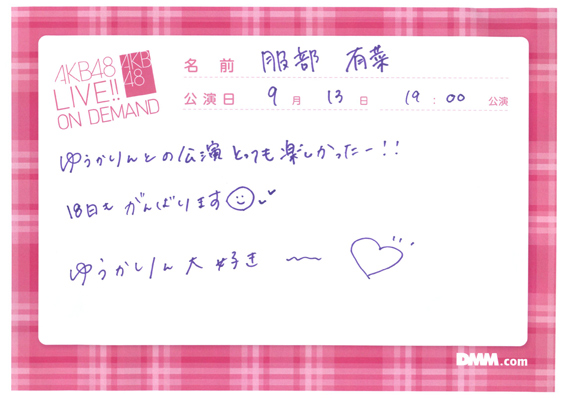 AKB48
LIVE!!
ON DEMAND
AKB
48
名前 服部 有菜
公演日 9月 13日 19:00 公演
ゆうかりんとの公演とっても楽しかったー!!
18日もがんばります
ゆうかりん大好き 〜〜
DMM.com